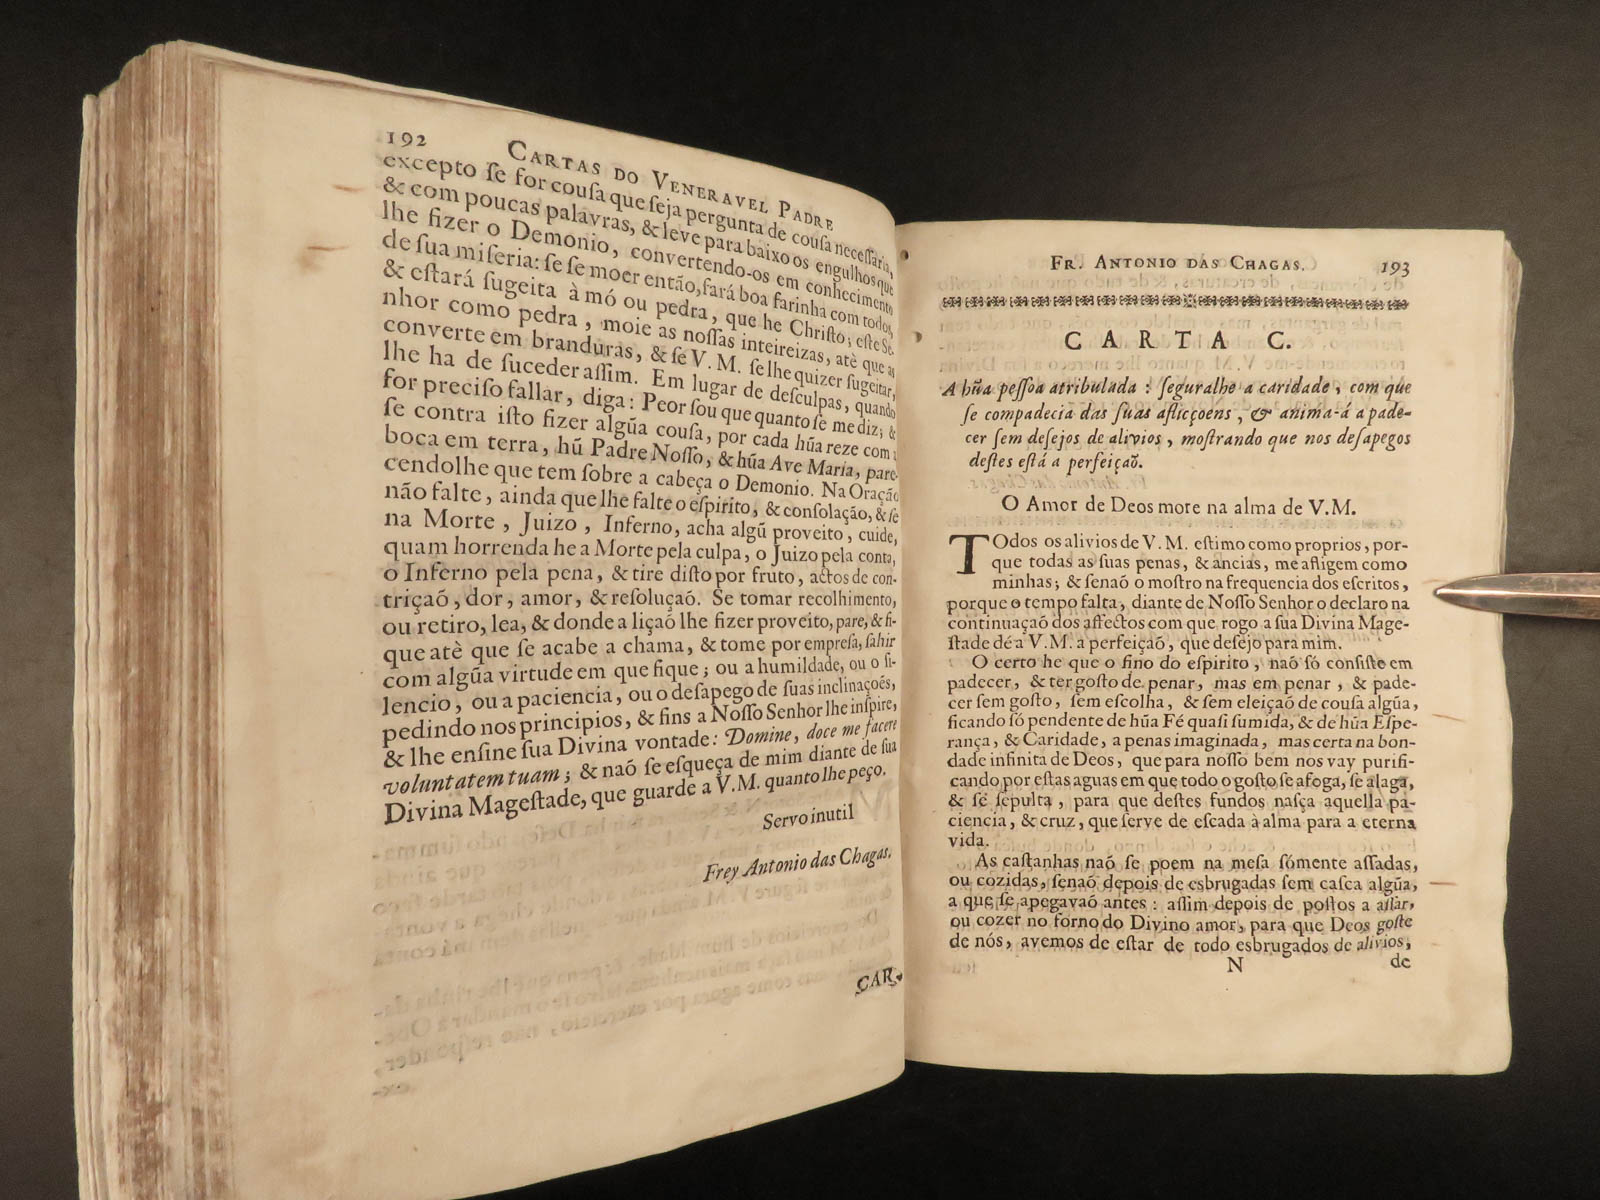 192 CARTAS DO VENERAVEL PADRE
excepto ſe for couſa que ſeja pergunta de couſa neceſſaria,
& com poucas palavras, & leve para baixo os engulhos que
lhe fizer o Demonio, convertendo-os em conhecimento
de ſua miſeria: ſe ſe moer então, fará boa farinha com todos,
& eſtará ſugeita à mó ou pedra, que he Chriſto; eſte Se-
nhor como pedra, moie as noſſas inteireizas, atè que as
converte em branduras, & ſe V. M. ſe lhe quizer ſugeitar,
lhe ha de ſuceder aſſim. Em lugar de deſculpas, quando
for preciſo fallar, diga: Peor ſou que quanto ſe me diz; &
ſe contra iſto fizer algũa couſa, por cada hũa reze com a
boca em terra, hũ Padre Noſſo, & hũa Ave Maria, pare-
cendolhe que tem ſobre a cabeça o Demonio. Na Oração
não falte, ainda que lhe falte o eſpirito, & conſolação, & ſe
na Morte, Juizo, Inferno, acha algũ proveito, cuide,
quam horrenda he a Morte pela culpa, o Juizo pela conta,
o Inferno pela pena, & tire diſto por fruto, actos de con-
triçaõ, dor, amor, & reſoluçaõ. Se tomar recolhimento,
ou retiro, lea, & donde a liçaõ lhe fizer proveito, pare, & fi-
que atè que ſe acabe a chama, & tome por empreſa, ſahir
com algũa virtude em que fique; ou a humildade, ou o ſi-
lencio, ou a paciencia, ou o deſapego de ſuas inclinaçoẽs,
pedindo nos principios, & fins a Noſſo Senhor lhe inſpire,
& lhe enſine ſua Divina vontade: Domine, doce me facere
voluntatem tuam; & naõ ſe eſqueça de mim diante de ſua
Divina Mageſtade, que guarde a V.M. quanto lhe peço.
Servo inutil
Frey Antonio das Chagas.
CAR-
FR. ANTONIO DAS CHAGAS. 193
CARTA C.
A hũa peſſoa atribulada: ſeguralhe a caridade, com que
ſe compadecia das ſuas aflicçoens, & anima-á a pade-
cer ſem deſejos de alivios, moſtrando que nos deſapegos
deſtes eſtá a perfeiçaõ.
O Amor de Deos more na alma de V.M.
TOdos os alivios de V. M. eſtimo como proprios, por-
que todas as ſuas penas, & ancias, me afligem como
minhas; & ſenaõ o moſtro na frequencia dos eſcritos,
porque o tempo falta, diante de Noſſo Senhor o declaro na
continuaçaõ dos affectos com que rogo a ſua Divina Mage-
ſtade dé a V. M. a perfeiçaõ, que deſejo para mim.
O certo he que o fino do eſpirito, naõ ſó conſiſte em
padecer, & ter goſto de penar, mas em penar, & pade-
cer ſem goſto, ſem eſcolha, & ſem eleiçaõ de couſa algũa,
ficando ſó pendente de hũa Fé quaſi ſumida, & de hũa Eſpe-
rança, & Caridade, a penas imaginada, mas certa na bon-
dade infinita de Deos, que para noſſo bem nos vay purifi-
cando por eſtas aguas em que todo o goſto ſe afoga, ſe alaga,
& ſe ſepulta, para que deſtes fundos naſça aquella pa-
ciencia, & cruz, que ſerve de eſcada à alma para a eterna
vida.
As caſtanhas naõ ſe poem na meſa ſómente aſſadas,
ou cozidas, ſenaõ depois de esbrugadas ſem caſca algũa,
a que ſe apegavaõ antes: aſſim depois de poſtos a aſſar,
ou cozer no forno do Divino amor, para que Deos goſte
de nós, avemos de eſtar de todo esbrugados de alivios,
N de